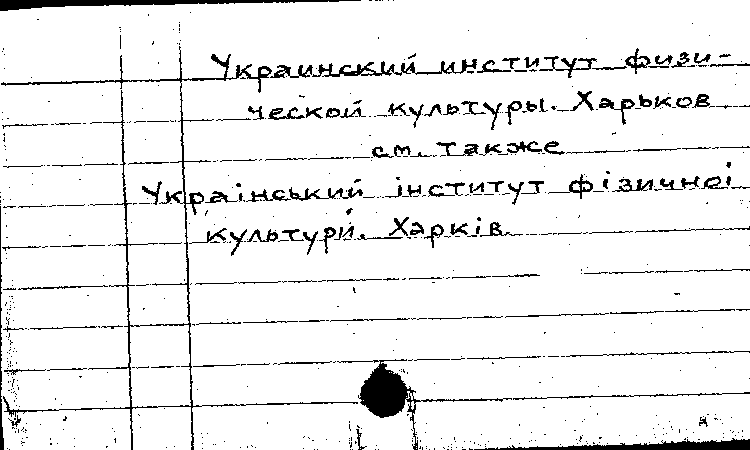 Украинский институт физи-
ческой культуры. Харьков.
см. также
Український інститут фізичної
культури. Харків.